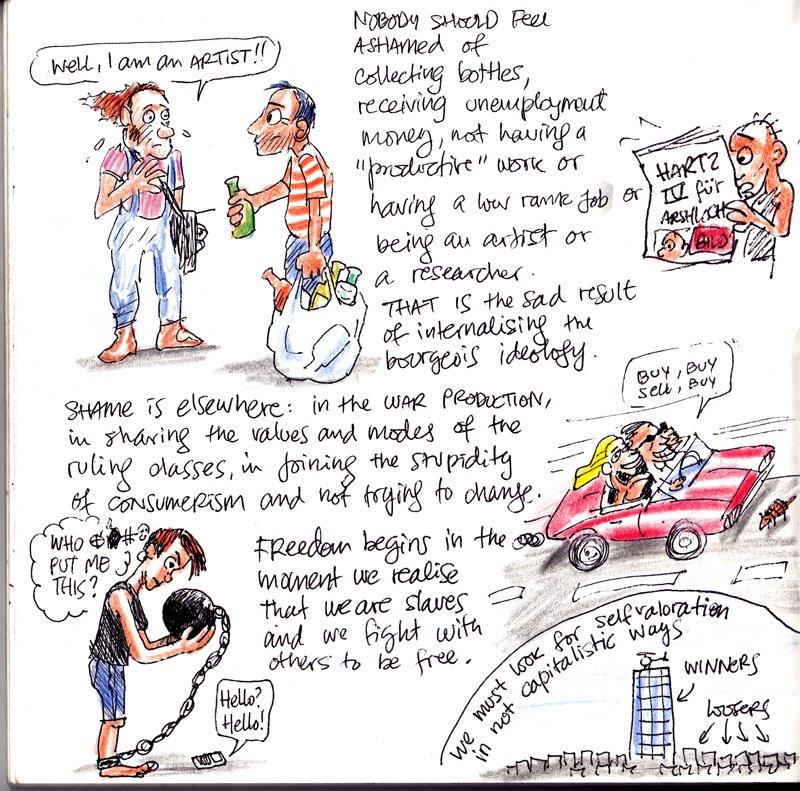 Well, I am an ARTIST!!
NOBODY SHOULD FEEL
ASHAMED OF
collecting bottles,
receiving unemployment
money, not having a
"productive" work or
having a low rank job or
being an artist or
a researcher.
THAT is the sad result
of internalising the
bourgeois ideology.
HARTZ
IV für
ARSHLOCH
BILD
SHAME is elsewhere: in the WAR PRODUCTION,
in sharing the values and modes of the
ruling classes, in joining the stupidity
of CONSUMERISM and not trying to change.
BUY, BUY
Sell, BUY
WHO
PUT ME
THIS?
FREEDOM begins in the
moment we realise
that we are slaves
and we fight with
others to be free.
Hello?
Hello!
we must look for selfvaloration
in not capitalistic ways
WINNERS
LOOSERS